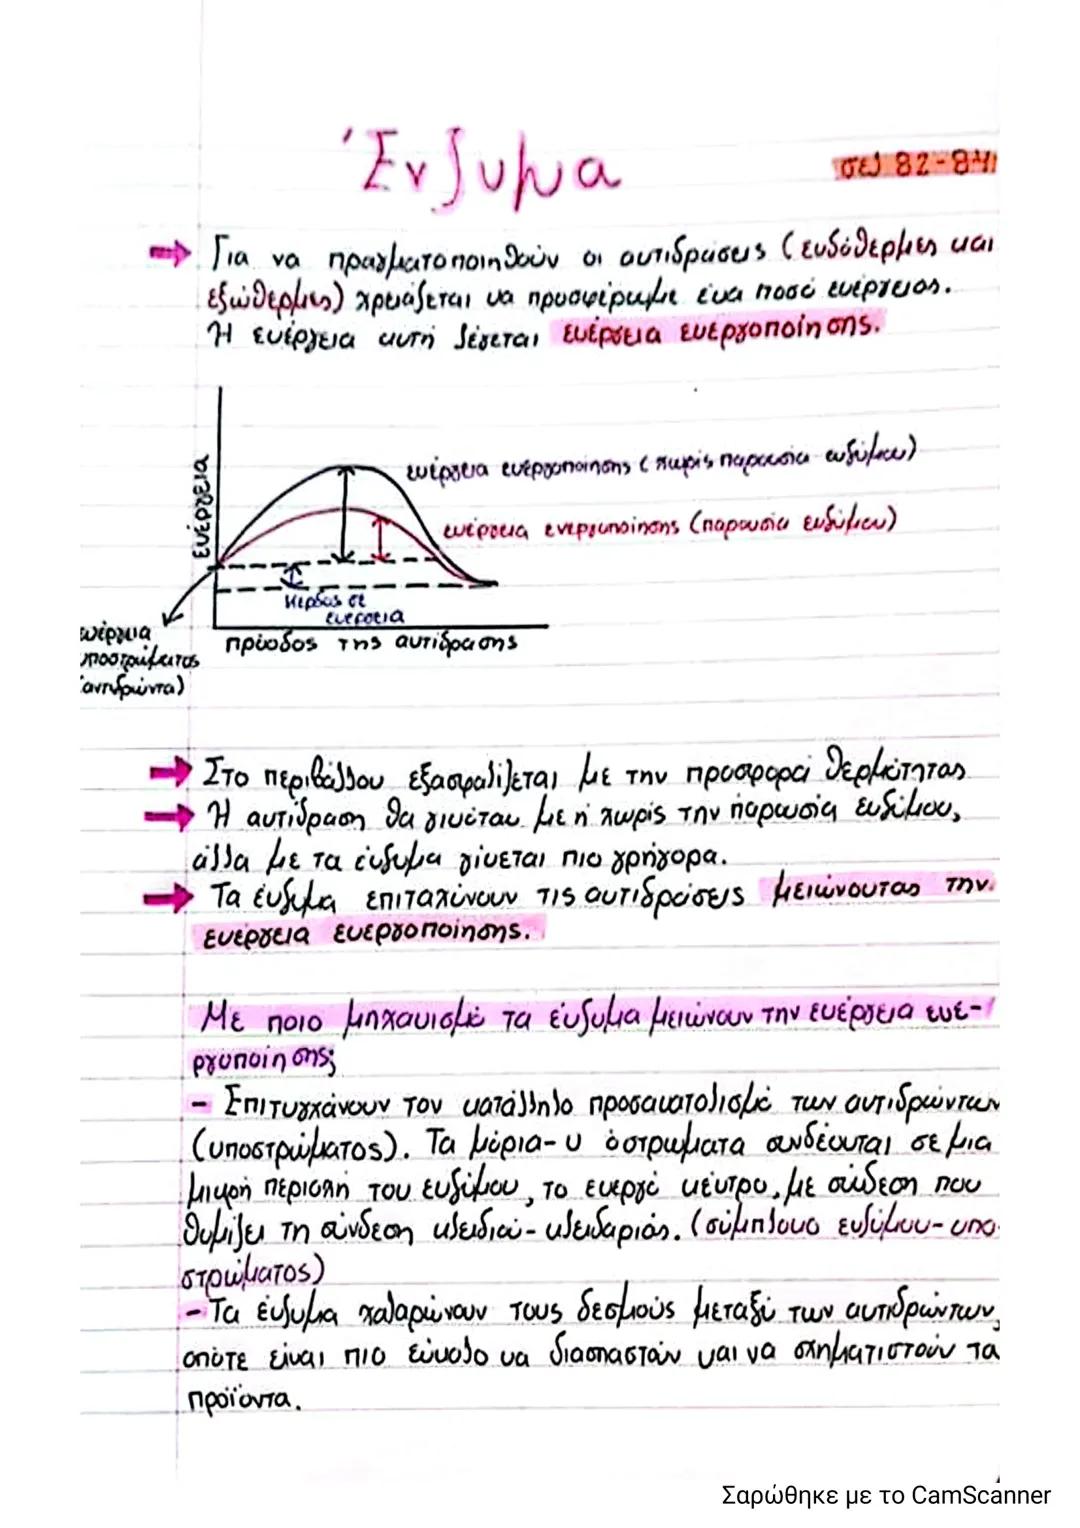 Ένζυμα
σελ 82-84
Για να πραγματοποιηθούν οι αντιδράσεις (ενδόθερμες και
εξώθερμες) χρειάζεται να προσφέρουμε ένα ποσό ενέργειας.
Η ενέργεια αυτή λέγεται ενέργεια ενεργοποίησης.
ενέργεια
ενέργεια ενεργοποίησης (χωρίς παρουσία ενζύμου)
ενέργεια ενεργοποίησης (παρουσία ενζύμου)
κέρδος σε
ενέργεια
ενέργεια
υποστρώματος
(αντιδρώντα)
πρόοδος της αντίδρασης
Στο περιβάλλον εξασφαλίζεται με την προσφορά θερμότητας
Η αντίδραση θα γινόταν με ή χωρίς την παρουσία ενζύμου,
άλλα με τα ένζυμα γίνεται πιο γρήγορα.
Τα ένζυμα επιταχύνουν τις αντιδράσεις μειώνοντας την
ενέργεια ενεργοποίησης.
Με ποιο μηχανισμό τα ένζυμα μειώνουν την ενέργεια ενε-
ργοποίησης;
- Επιτυγχάνουν τον κατάλληλο προσανατολισμό των αντιδρώντων
(υποστρώματος). Τα μόρια-υπόστρωματα συνδέονται σε μια
μικρή περιοχή του ενζύμου, το ενεργό κέντρο, με σύνδεση που
θυμίζει τη σύνδεση κλειδιού-κλειδαριάς. (σύμπλοκο ενζύμου-υπο-
στρώματος)
- Τα ένζυμα χαλαρώνουν τους δεσμούς μεταξύ των αντιδρώντων,
οπότε είναι πιο εύκολο να διασπαστούν και να σχηματιστούν τα
προϊόντα.
Σαρώθηκε με το CamScanner